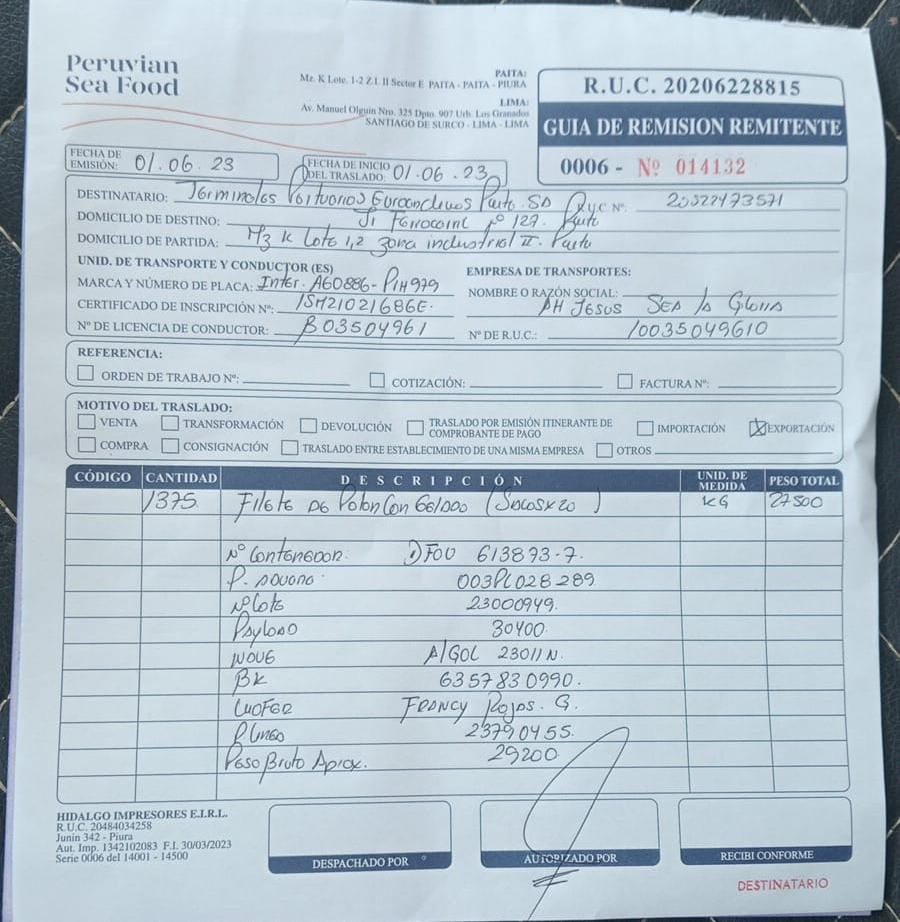 Peruvian
Sea Food
PAITA:
Mz. K Lote. 1-2 Z.I. II Sector E PAITA - PAITA - PIURA
LIMA:
Av. Manuel Olguin Nro. 325 Dpto. 907 Urb. Los Granados
SANTIAGO DE SURCO - LIMA - LIMA
R.U.C. 20206228815
GUIA DE REMISION REMITENTE
0006 - Nº 014132
FECHA DE EMISIÓN: 01.06.23
FECHA DE INICIO DEL TRASLADO: 01.06.23
DESTINATARIO: Terminales Portuarios Euroandinos Paita SA R.U.C Nº: 20522473571
DOMICILIO DE DESTINO: Jr Ferrocarril Nº 127. Paita
DOMICILIO DE PARTIDA: Mz K Lote 1,2 zona industrial II. Paita
UNID. DE TRANSPORTE Y CONDUCTOR (ES)
MARCA Y NÚMERO DE PLACA: Inter. A60886-P1H979
CERTIFICADO DE INSCRIPCIÓN Nº: 15M21021686E.
Nº DE LICENCIA DE CONDUCTOR: B03504961
EMPRESA DE TRANSPORTES:
NOMBRE O RAZÓN SOCIAL:
AH JESUS SEA la Gloria
Nº DE R.U.C.: 10035049610
REFERENCIA:
ORDEN DE TRABAJO Nº: COTIZACIÓN: FACTURA Nº:
MOTIVO DEL TRASLADO:
VENTA TRANSFORMACIÓN DEVOLUCIÓN TRASLADO POR EMISIÓN ITINERANTE DE COMPROBANTE DE PAGO IMPORTACIÓN EXPORTACIÓN
COMPRA CONSIGNACIÓN TRASLADO ENTRE ESTABLECIMIENTO DE UNA MISMA EMPRESA OTROS
CÓDIGO CANTIDAD DESCRIPCIÓN UNID. DE MEDIDA PESO TOTAL
1375 Filete de Poton Congelado (Sacosx20) KG 27500
Nº Contenedor: DFOU 613873-7.
P. aduana. 003PL028289
Nº Lote 23000949.
Payload 30400.
NAVE AlGOL 23011N.
BK 6357830990.
CHOFER FRANCY Rojas. G.
P. Linea 23790455.
Peso Bruto Aprox. 29200.
HIDALGO IMPRESORES E.I.R.L.
R.U.C. 20484034258
Junin 342 - Piura
Aut. Imp. 1342102083 F.I. 30/03/2023
Serie 0006 del 14001 - 14500
DESPACHADO POR
AUTORIZADO POR
RECIBI CONFORME
DESTINATARIO